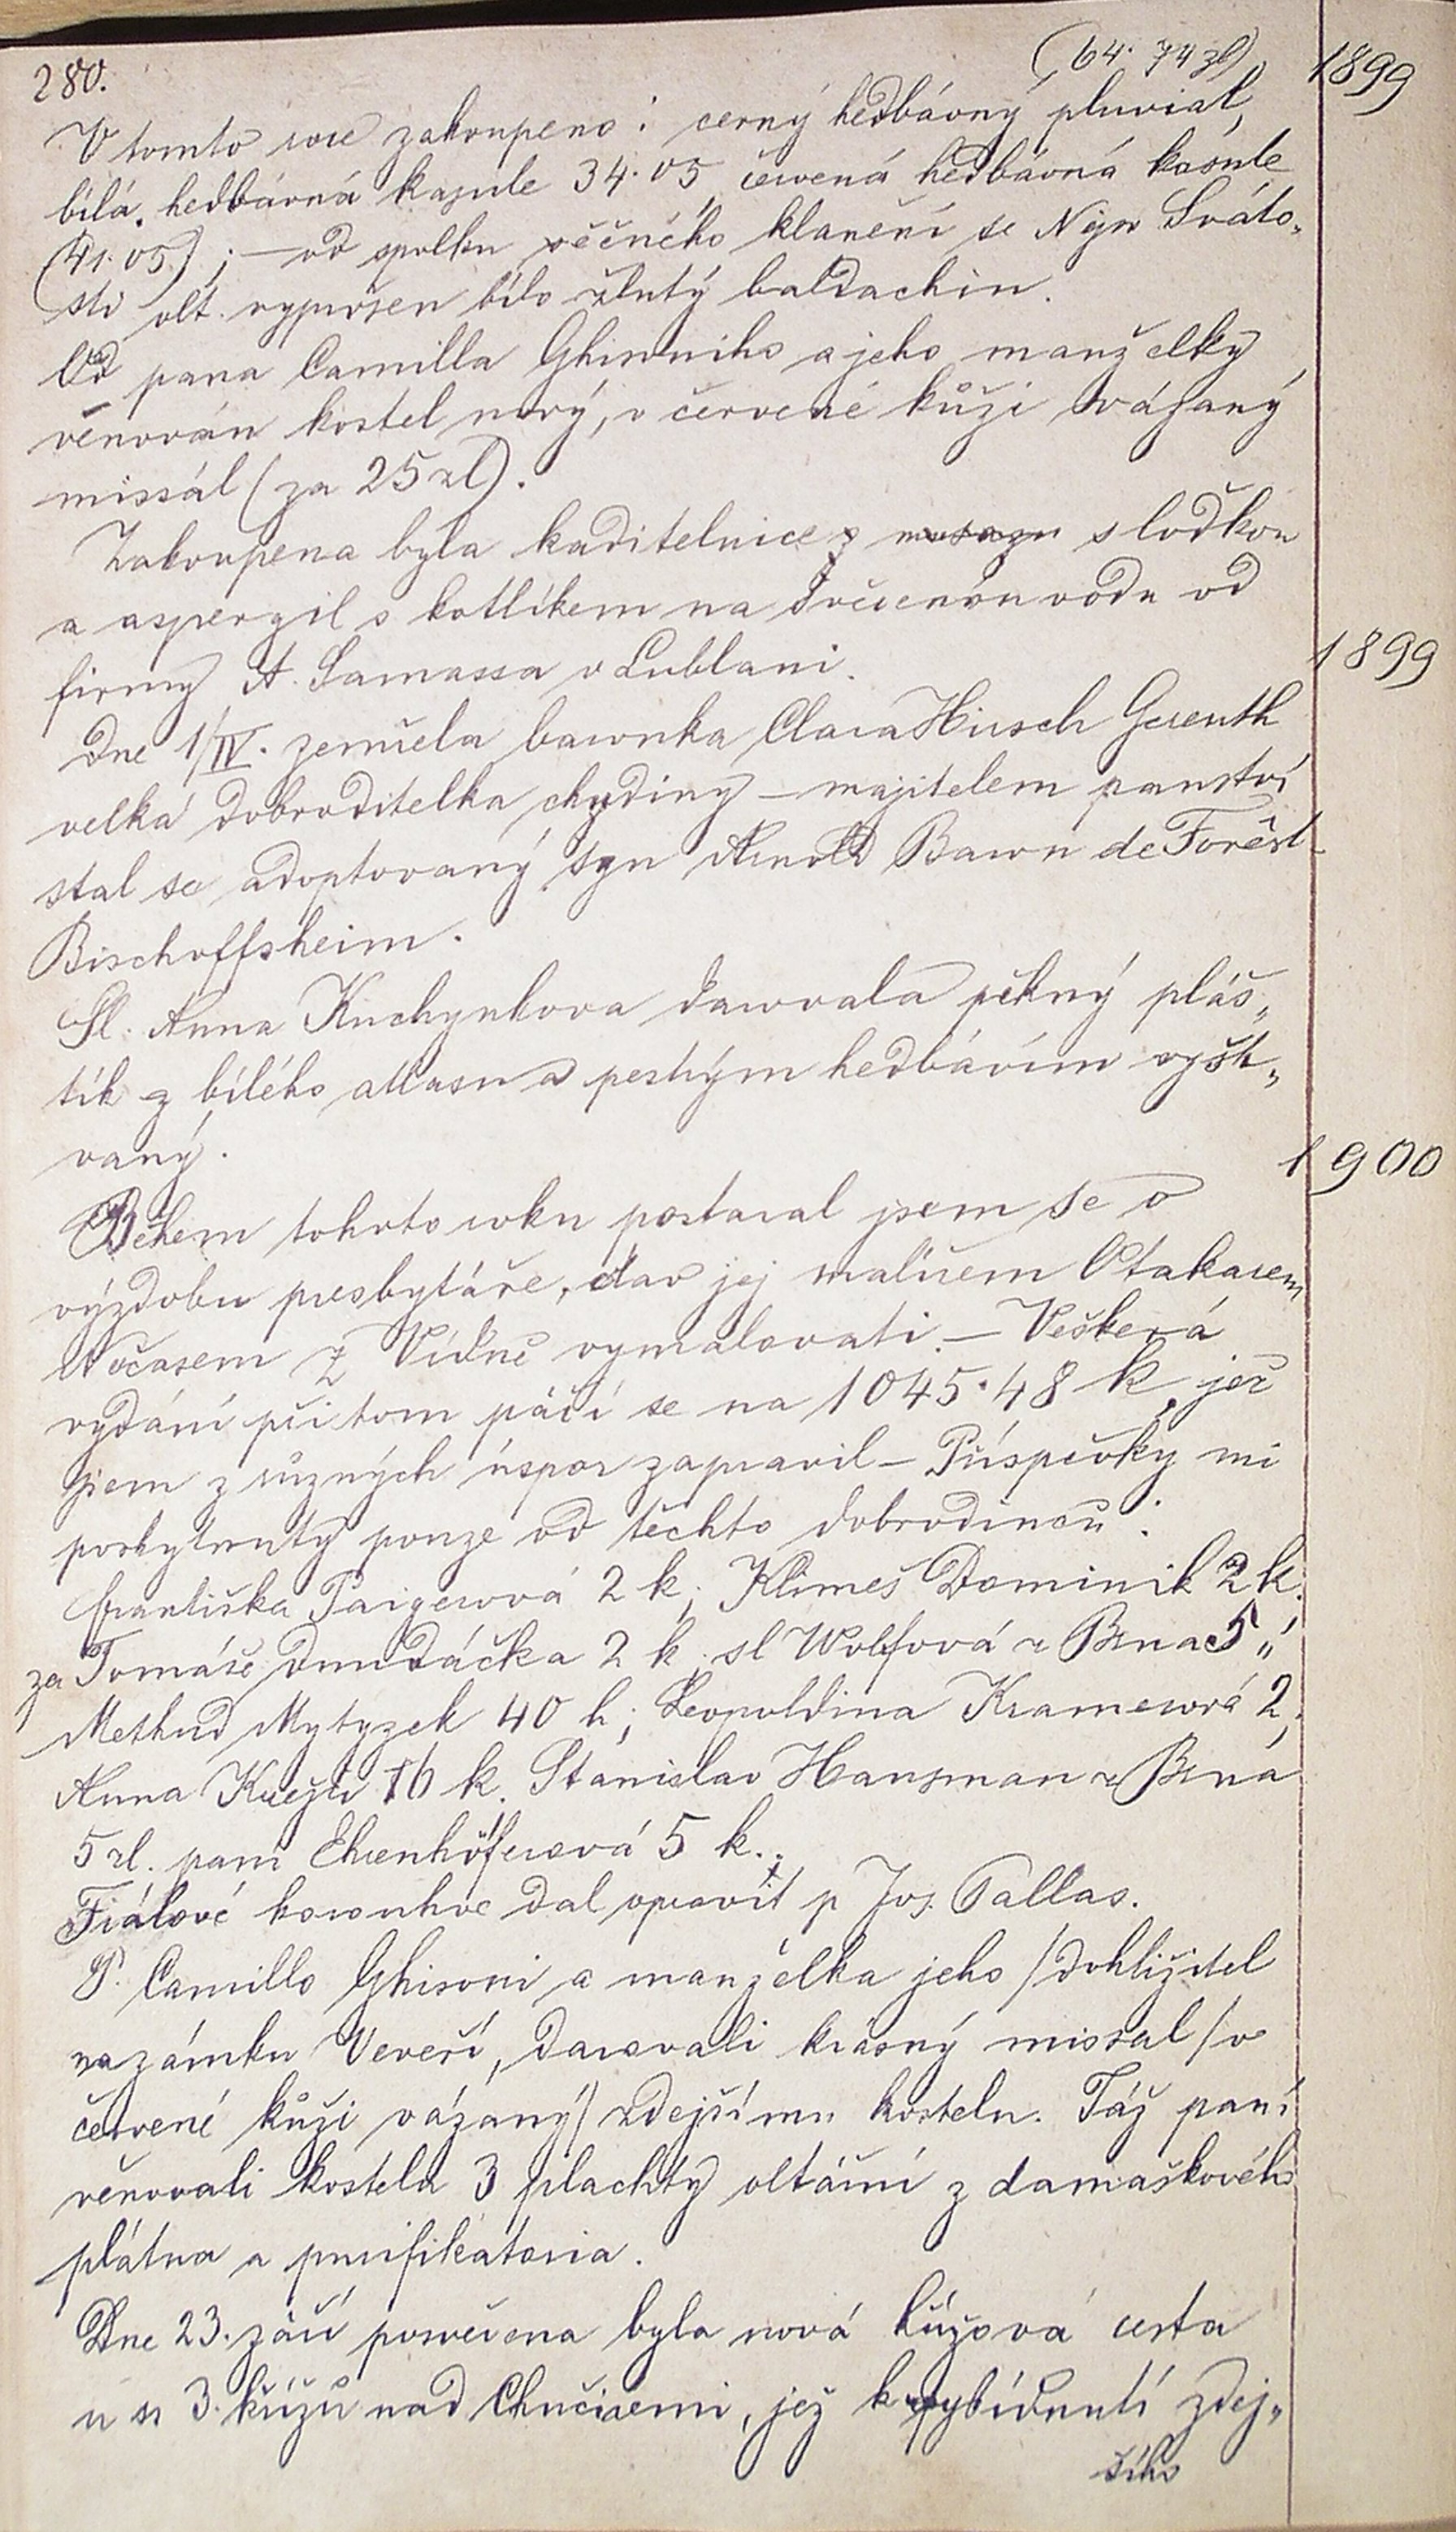 280.
(64·74 zl)
1899
V tomto roce zakoupeno: černý hedbávný pluviál,
bílá hedbávná kasule 34·05, červená hedbávná kasule
(41·05); — od spolku věčného klanění se Nejsv Sváto„
sti olt. vypůjčen bílo žlutý baldachin.
Od pana Camilla Ghisoniho a jeho manželky
věnován kostel nový, v červené kůži vázaný
missál (za 25 zl).
Zakoupena byla kaditelnice z mosazu s loďkou
a aspergil s kotlíkem na svěcenou vodu od
firmy A. Samassa v Lublani.
1899
Dne 1/IV. zemřela baronka Clara Hirsch Gereuth
velká dobroditelka chudiny — majitelem panství
stal se adoptovaný syn Arnold Baron de Forêst
Bischoffsheim.
Sl. Anna Kuchynkova darovala pěkný pláš„
tík z bílého atlasu a pestrým hedbávím vyší„
vaný.
1900
Během tohoto roku postaral jsem se o
výzdobu presbytáře, dav jej malířem Otakarem
Vočasem z Vídně vymalovati. — Veškerá
vydání při tom páčí se na 1045·48 K, jež
jsem z různých úspor zapravil — Příspěvky mi
poskytnuty pouze od těchto dobrodinců:
Františka Paigerová 2 k, Klimeš Dominik 2 k.
za Tomáše Dmudáčka 2 k, sl Wolfová z Brna 5 „
Methud Mytyzek 40 h; Leopoldina Kramerová 2,
Anna 16 k. Stanislav Hansman z Brna
5 zl. paní Ehrenhöferová 5 k..
Fiálové korouhve dal opravit p Jos. Pallas.
P. Camillo Ghisoni a manželka jeho /dohližitel
na zámku Veveří, darovali krásný missal /v
červené kůži vázaný/ zdejšímu kostelu. Táž paní
věnovali kostelu 3 plachty oltářní z damaškového
plátna a purifikátoria.
Dne 23. září posvěcena byla nová křížová cesta
u sv 3. křížů nad Chudčicemi, jež k vybídnutí zdej„
šího